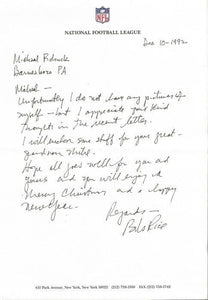 NFL
NATIONAL FOOTBALL LEAGUE
Dec 10-1992
Michael
Barnesboro PA
Michael -
Unfortunately I do not have any pictures of
myself - but I appreciate your kind
thoughts in the recent letter.
I will enclose some stuff for your great-
grandson
Hope all goes well for you and
yours and you will enjoy a
Merry Christmas and a happy
new year.
Regards -
410 Park Avenue, New York, New York 10022 (212) 758-1500 FAX (212) 758-1742